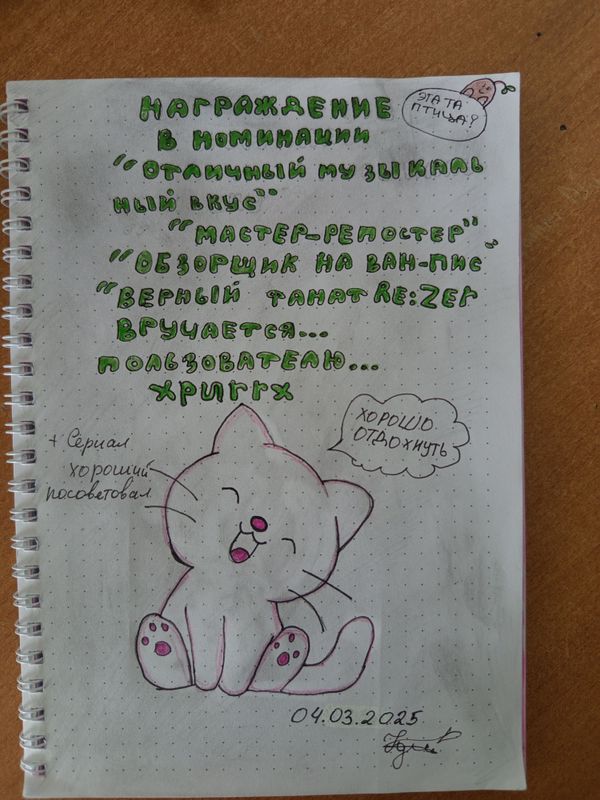 НАГРАЖДЕНИЕ
ЭТА ТА
ПТИЦА?
В НОМИНАЦИИ
"ОТЛИЧНЫЙ МУЗЫКАЛЬ
НЫЙ ВКУС"
"МАСТЕР-РЕПОСТЕР"
"ОБЗОРЩИК НА ВАН-ПИС"
"ВЕРНЫЙ ФАНАТ RE:ZER
ВРУЧАЕТСЯ...
ПОЛЬЗОВАТЕЛЮ...
ХРИГГХ
ХОРОШО
ОТДОХНУТЬ
+ Сериал
хороший
посоветовал
04.03.2025